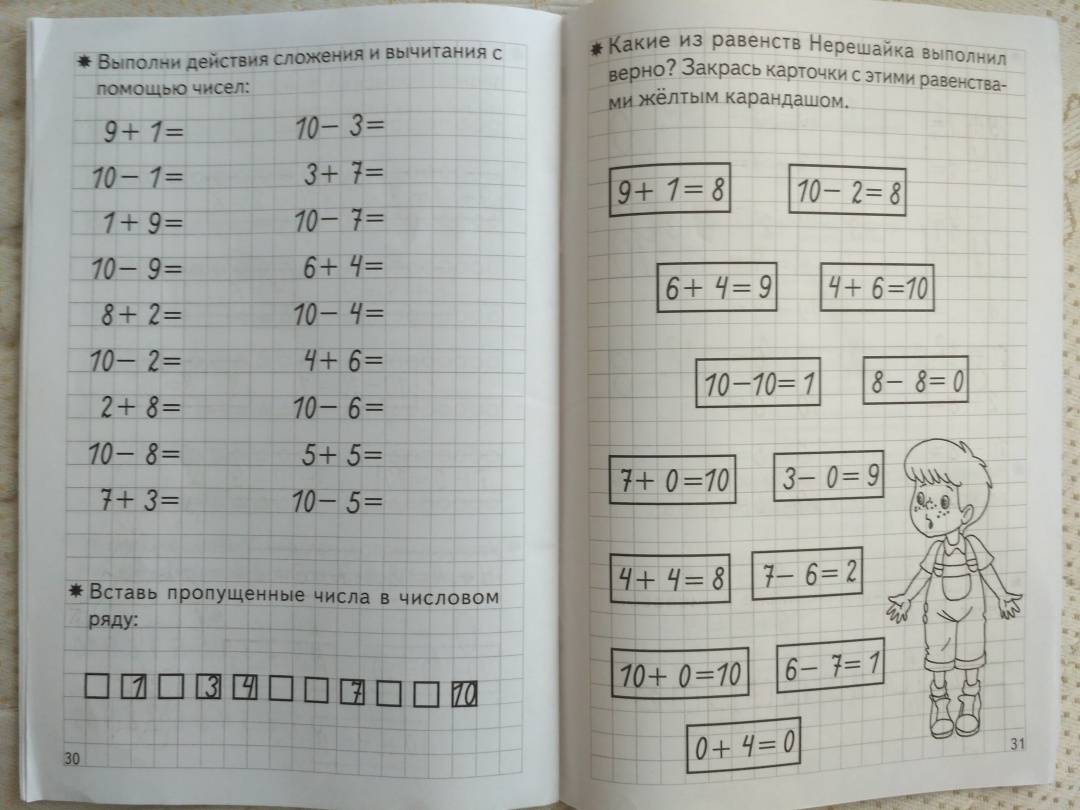 ✷ Выполни действия сложения и вычитания с
помощью чисел:
9 + 1 = 10 − 3 =
10 − 1 = 3 + 7 =
1 + 9 = 10 − 7 =
10 − 9 = 6 + 4 =
8 + 2 = 10 − 4 =
10 − 2 = 4 + 6 =
2 + 8 = 10 − 6 =
10 − 8 = 5 + 5 =
7 + 3 = 10 − 5 =
✷ Вставь пропущенные числа в числовом
ряду:
1 3 4 7 10
30
✷ Какие из равенств Нерешайка выполнил
верно? Закрась карточки с этими равенства-
ми жёлтым карандашом.
9 + 1 = 8 10 − 2 = 8
6 + 4 = 9 4 + 6 = 10
10 − 10 = 1 8 − 8 = 0
7 + 0 = 10 3 − 0 = 9
4 + 4 = 8 7 − 6 = 2
10 + 0 = 10 6 − 7 = 1
0 + 4 = 0
31